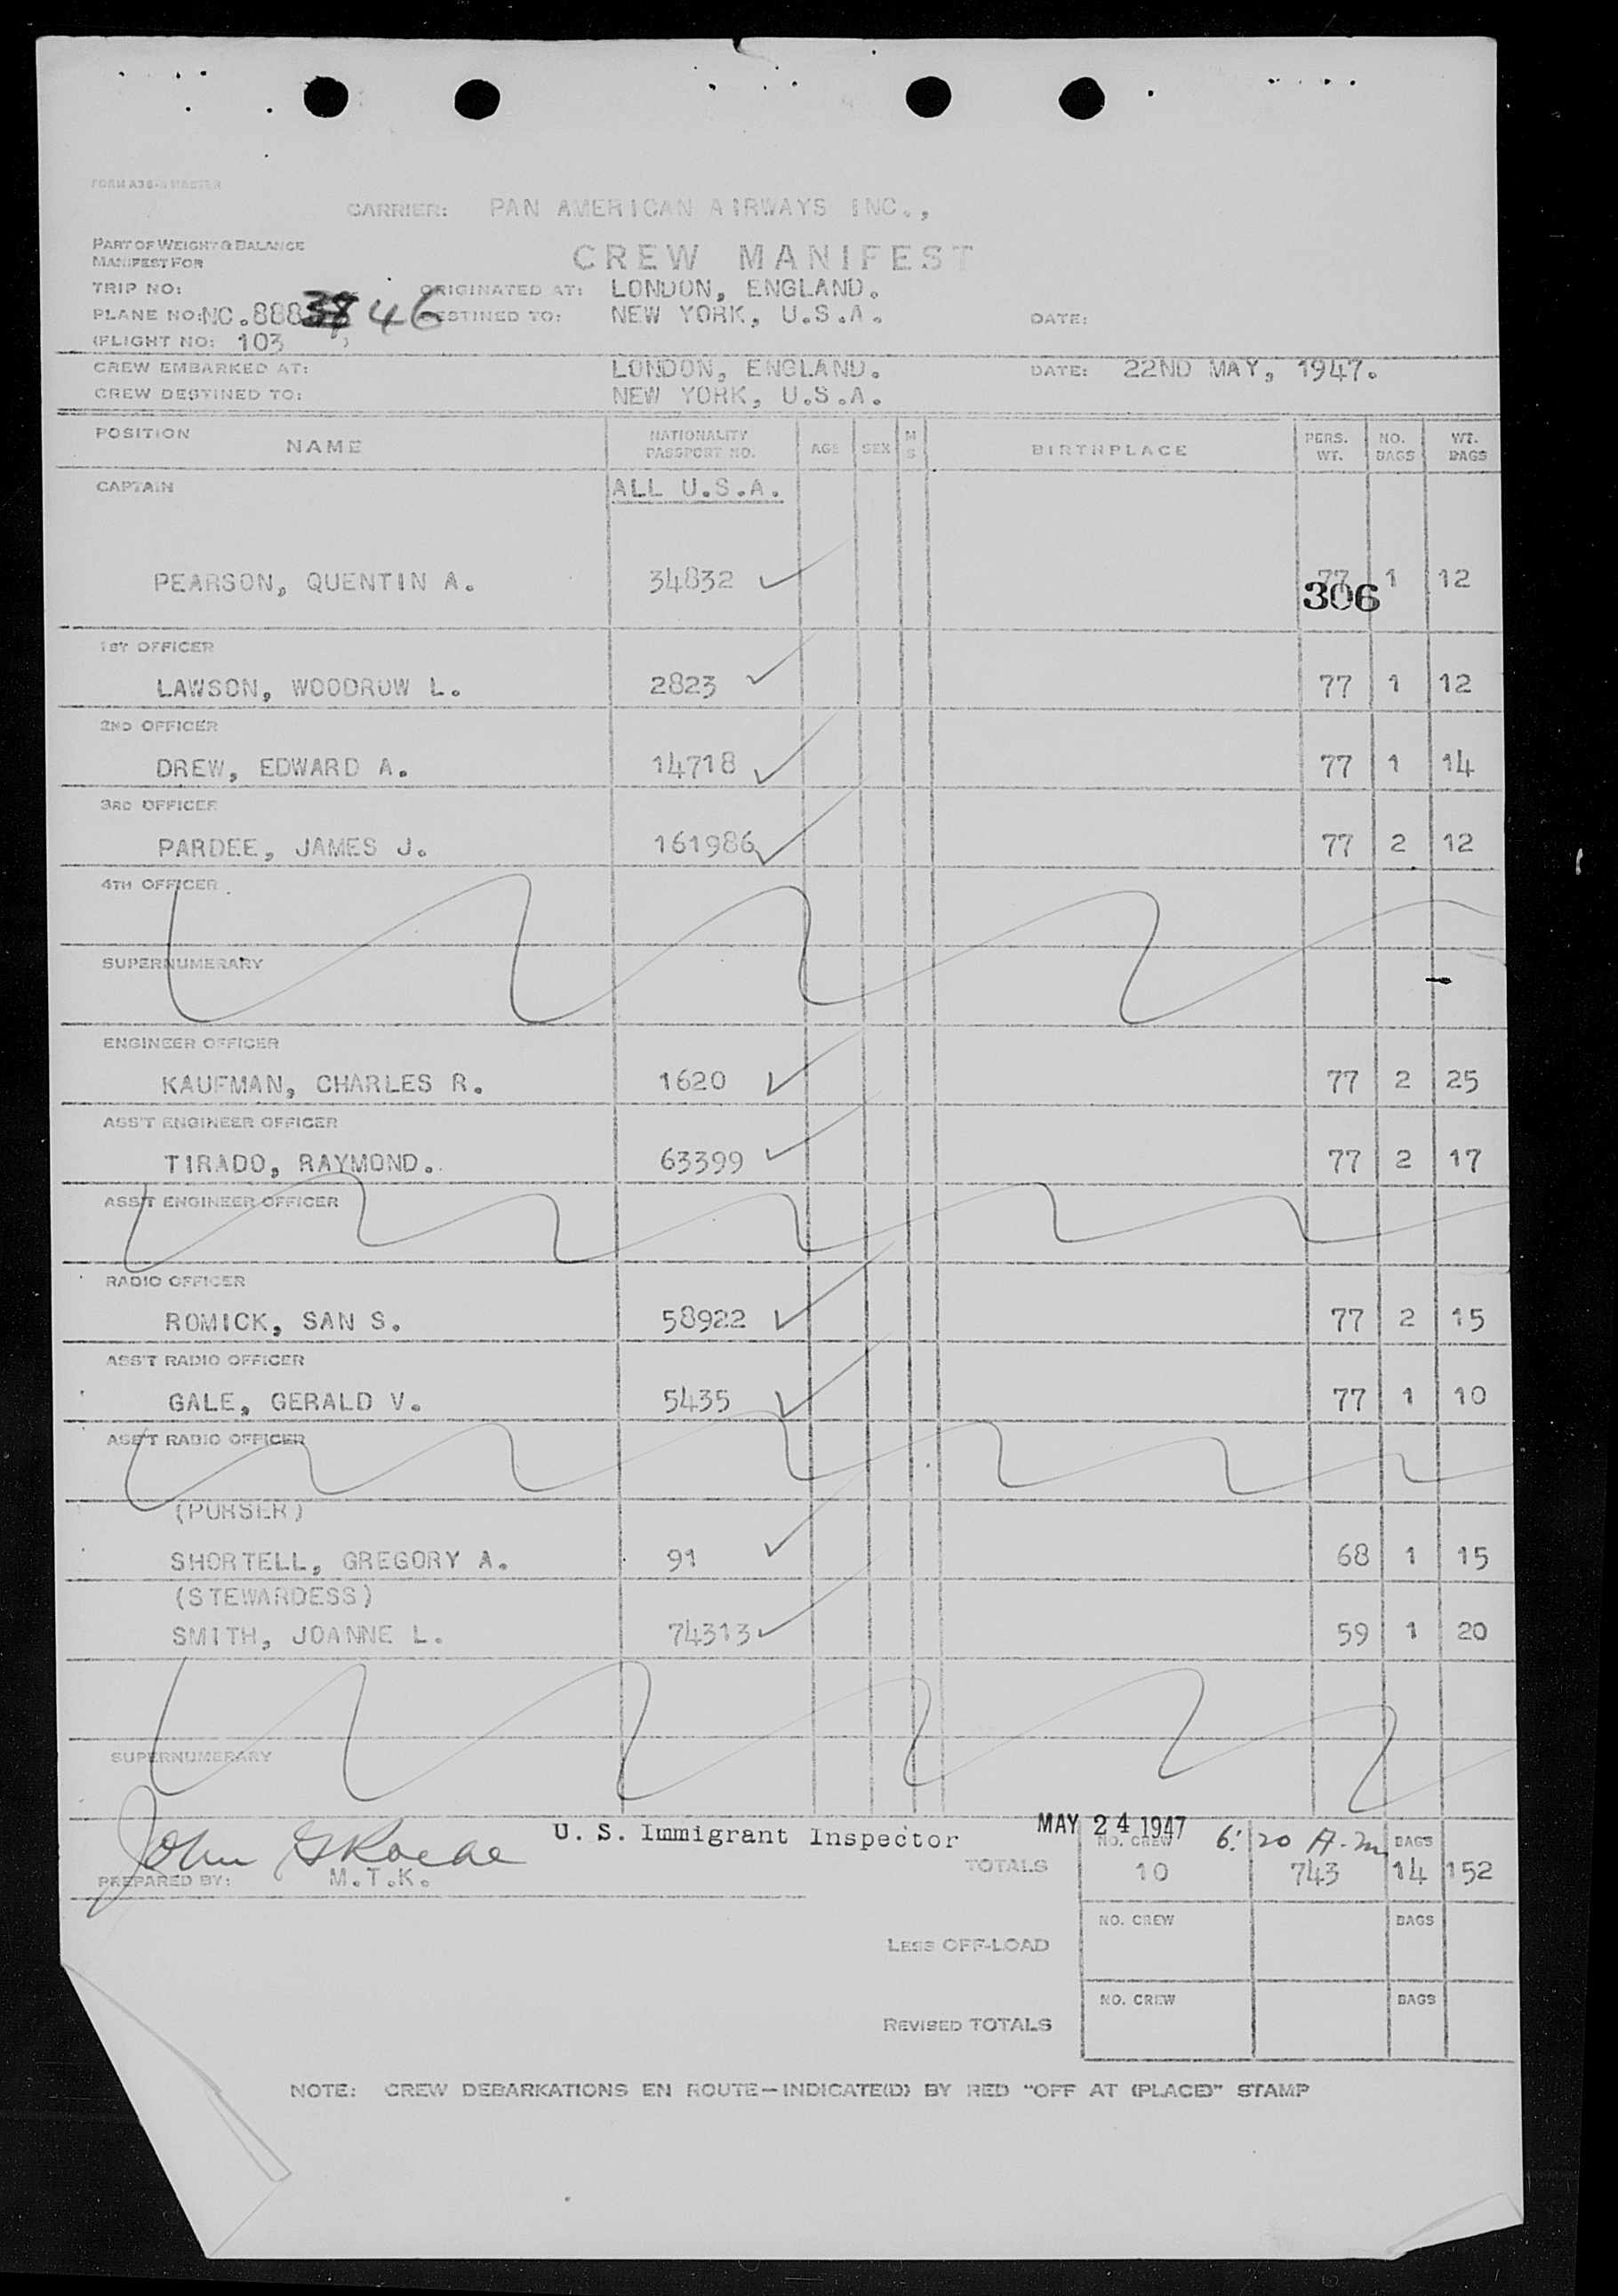 FORM A36-A MASTER
CARRIER: PAN AMERICAN AIRWAYS INC.,
PART OF WEIGHT & BALANCE
MANIFEST FOR
CREW MANIFEST
TRIP NO: ORIGINATED AT: LONDON, ENGLAND.
PLANE NO: NC.888 46 DESTINED TO: NEW YORK, U.S.A. DATE:
(FLIGHT NO: 103 )
CREW EMBARKED AT: LONDON, ENGLAND. DATE: 22ND MAY, 1947.
CREW DESTINED TO: NEW YORK, U.S.A.
POSITION NAME NATIONALITY PASSPORT NO. AGE SEX M S BIRTHPLACE PERS. WT. NO. BAGS WT. BAGS
CAPTAIN ALL U.S.A.
PEARSON, QUENTIN A. 34832 77 1 12
306
1ST OFFICER
LAWSON, WOODROW L. 2823 77 1 12
2ND OFFICER
DREW, EDWARD A. 14718 77 1 14
3RD OFFICER
PARDEE, JAMES J. 161986 77 2 12
4TH OFFICER
SUPERNUMERARY
ENGINEER OFFICER
KAUFMAN, CHARLES R. 1620 77 2 25
ASS'T ENGINEER OFFICER
TIRADO, RAYMOND. 63399 77 2 17
ASS'T ENGINEER OFFICER
RADIO OFFICER
ROMICK, SAN S. 58922 77 2 15
ASS'T RADIO OFFICER
GALE, GERALD V. 5435 77 1 10
ASS'T RADIO OFFICER
(PURSER)
SHORTELL, GREGORY A. 91 68 1 15
(STEWARDESS)
SMITH, JOANNE L. 74313 59 1 20
SUPERNUMERARY
John G U. S. Immigrant Inspector MAY 24 1947 6:20 A.m
NO. CREW BAGS
PREPARED BY: M.T.K. TOTALS 10 743 14 152
NO. CREW BAGS
LESS OFF-LOAD
NO. CREW BAGS
REVISED TOTALS
NOTE: CREW DEBARKATIONS EN ROUTE—INDICATE(D) BY RED "OFF AT (PLACE)" STAMP